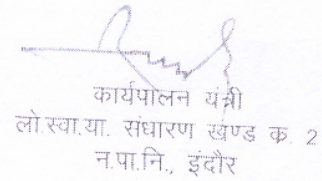 कार्यपालन यंत्री
लो.स्वा.या. संधारण खण्ड क. 2
न.पा.नि., इंदौर